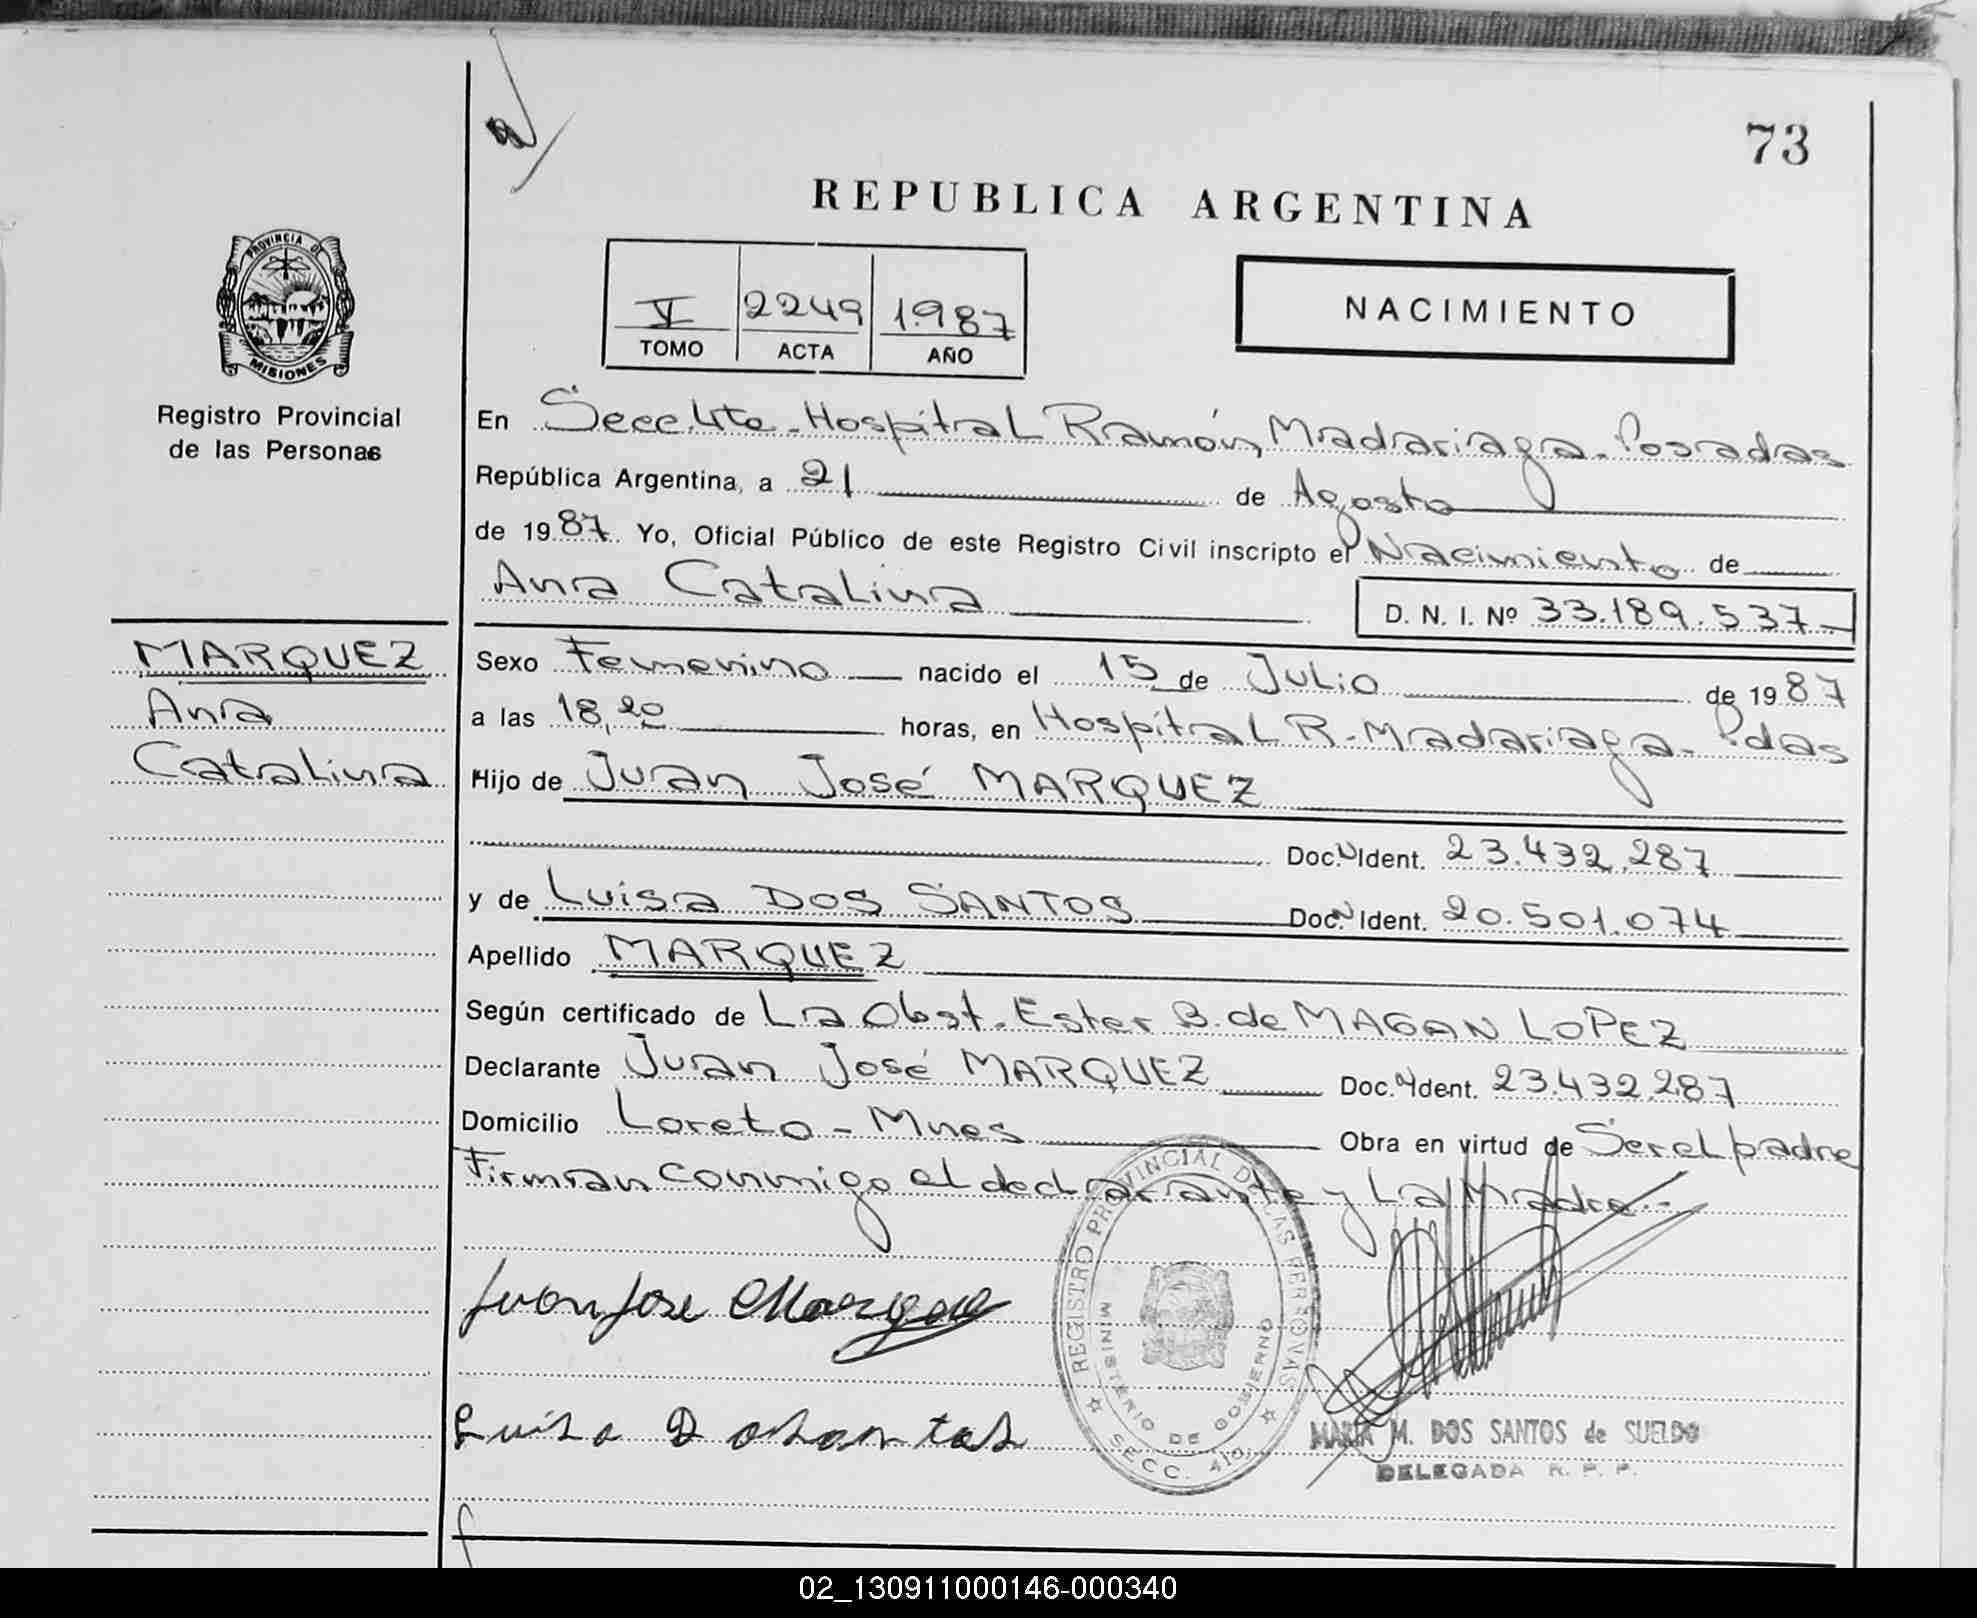 73
REPUBLICA ARGENTINA
PROVINCIA DE
MISIONES
Registro Provincial
de las Personas
V 2249 1.987
TOMO ACTA AÑO
NACIMIENTO
En Secc. 4ta - Hospital Ramón Madariaga - Posadas
República Argentina, a 21 de Agosto
de 1987. Yo, Oficial Público de este Registro Civil inscripto el Nacimiento de
Ana Catalina D. N. I. Nº 33.189.537
MARQUEZ
Ana
Catalina
Sexo Femenino nacido el 15 de Julio de 1987
a las 18,20 horas, en Hospital R. Madariaga - Pdas
Hijo de Juan José MARQUEZ
Doc. Ident. 23.432.287
y de Luisa DOS SANTOS Doc. Ident. 20.501.074
Apellido MARQUEZ
Según certificado de La Obst. Ester B. de MAGAN LOPEZ
Declarante Juan José MARQUEZ Doc. Ident. 23.432.287
Domicilio Loreto - Mnes Obra en virtud de Ser el padre
Firman conmigo el declarante y La Madre.-
Juan Jose Marquez
Luisa Dosantos
REGISTRO PROVINCIAL DE LAS PERSONAS
MINISTERIO DE GOBIERNO
SECC.
MARIA M. DOS SANTOS de SUELDO
DELEGADA R. P. P.
02_130911000146-000340